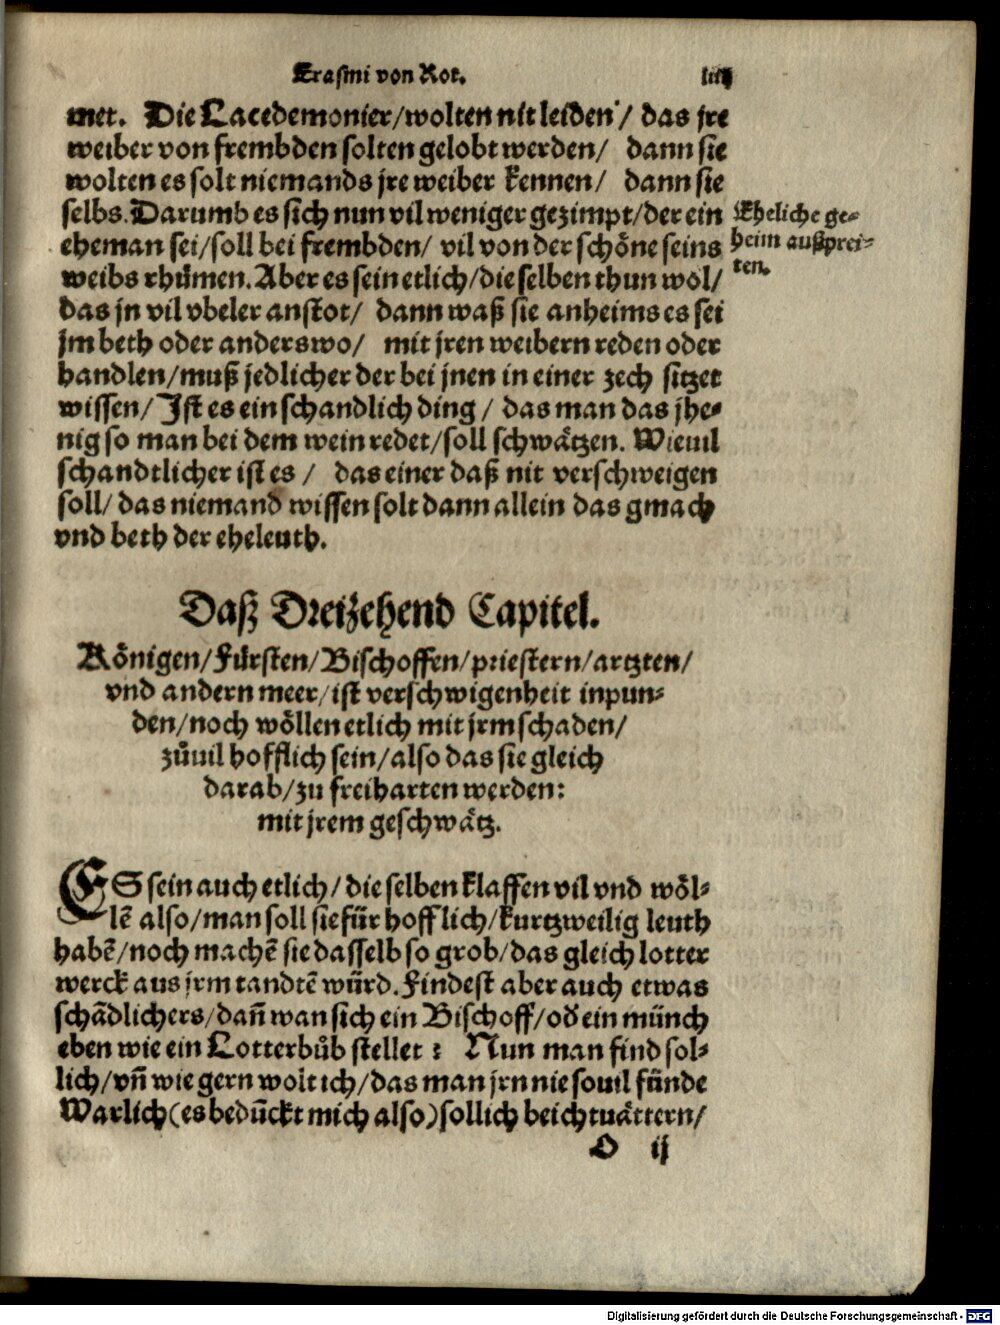 Erasmi von Rot.
met. Die Lacedemonier/wolten nit leiden / das jre
weiber von frembden solten gelobt werden/ dann sie
wolten es solt niemands jre weiber kennen/ dann sie
selbs. Darumb es sich nun vil weniger gezimpt/der ein
eheman sei/soll bei frembden/ vil von der schöne seins
weibs rhümen. Aber es sein etlich/die selben thun wol/
das jn vil vbeler anstot/ dann waß sie anheims es sei
jm beth oder anderswo/ mit jren weibern reden oder
handlen/muß jedlicher der bei jnen in einer zech sitzet
wissen/ Ist es ein schandlich ding / das man das jhe-
nig so man bei dem wein redet/soll schwätzen. Wieuil
schandtlicher ist es / das einer daß nit verschweigen
soll/ das niemand wissen solt dann allein das gmach
vnd beth der eheleuth.
Eheliche ge-
heim außprei-
ten.
Daß Dreizehend Capitel.
Königen/Fürsten/Bischoffen/priestern/artzten/
vnd andern meer/ist verschwigenheit inpun-
den/noch wöllen etlich mit jrm schaden/
zůuil hofflich sein/also das sie gleich
darab/zu freiharten werden:
mit jrem geschwätz.
ES sein auch etlich/die selben klaffen vil vnd wöl-
lē also/man soll sie für hofflich/kurtzweilig leuth
habē/noch machē sie dasselb so grob/das gleich lotter
werck aus jrm tandtē würd. Findest aber auch etwas
schädlichers/dañ wan sich ein Bischoff/od̕ ein münch
eben wie ein Lotterbůb stellet : Nun man find sol-
lich/vñ wie gern wolt ich/das man jrn nie souil fünde
Warlich(es beduckt mich also)sollich beichtuättern/
O ij
Digitalisierung gefördert durch die Deutsche Forschungsgemeinschaft - DFG